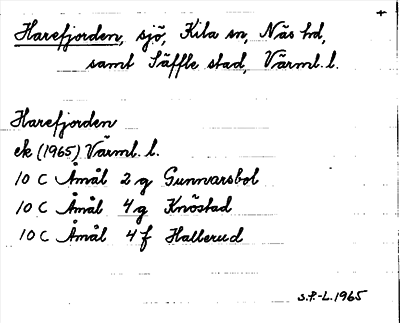 +
Harefjorden, sjö, Kila sn, Näs hd,
samt Säffle stad, Värml. l.
Harefjorden
ek (1965) Värml. l.
10 C Åmål 2 g Gunnarsbol
10 C Åmål 4 g Knöstad
10 C Åmål 4 f Hallerud
S.P.-L. 1965